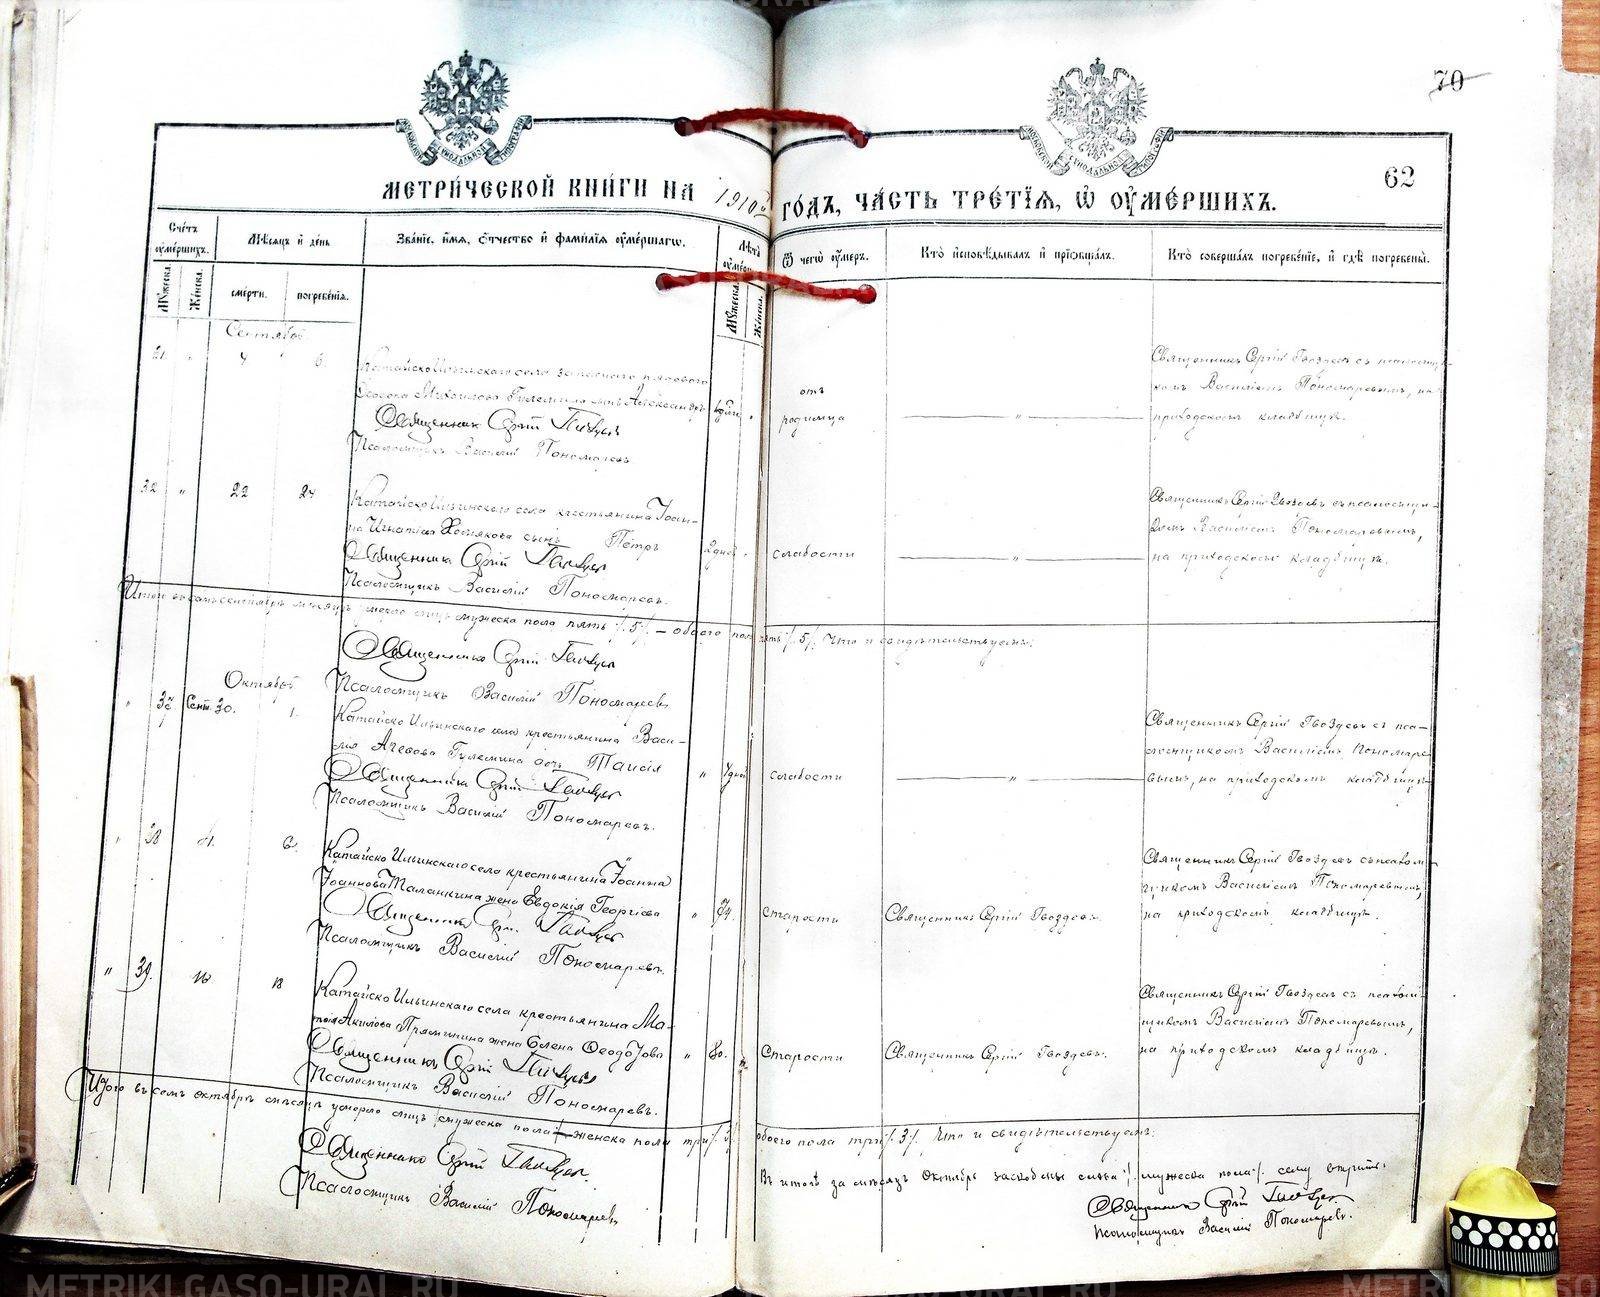 70
62
МЕТРИЧЕСКОЙ КНИГИ НА 1910 ГОДЪ, ЧАСТЬ ТРЕТІЯ, Ѿ ОУМЕРШИХЪ.
Счетъ оумершихъ.
Мѣсяцъ и день
Званіе, имя, отчество и фамилія оумершагω.
Лѣта
Ѿ чегω оумеръ.
Кто исповѣдывалъ и пріобщалъ.
Кто совершалъ погребеніе, и гдѣ погребены.
Мужеска.
Женска.
смерти.
погребенія.
Мужеска.
Женска.
Сентябрь
31 " 4 6
Катайско Ильинскаго села запаснаго рядового
Михаилова Гулемина сынъ Александръ
Священникъ Сергій Гвоздевъ
Псаломщикъ Василій Пономаревъ
отъ
родимца
"
Священникъ Сергій Гвоздевъ съ псаломщи-
комъ Василіемъ Пономаревымъ, на
приходскомъ кладбищѣ.
32 " 22 24
Катайско Ильинскаго села крестьянина Іоан-
на Игнатіева сынъ Петръ
Священникъ Сергій Гвоздевъ
Псаломщикъ Василій Пономаревъ.
2 дней "
слабости
"
Священникъ Сергій Гвоздевъ съ псаломщи-
комъ Василіемъ Пономаревымъ,
на приходскомъ кладбищѣ.
Итого въ семъ сентябрѣ мѣсяцѣ умерло лицъ мужеска пола пять /.5/. – обоего пола пять /.5/. Что и свидѣтельствуемъ:
Священникъ Сергій Гвоздевъ
Псаломщикъ Василій Пономаревъ
Октябрь
" 37 Сент. 30. 1.
Катайско Ильинскаго села крестьянина Васи-
лія Гулемина дочь Таисія
Священникъ Сергій Гвоздевъ
Псаломщикъ Василій Пономаревъ.
" дней
слабости
"
Священникъ Сергій Гвоздевъ съ пса-
ломщикомъ Василіемъ Пономаре-
вымъ, на приходскомъ кладбищѣ
" 38 4. 6.
Катайско Ильинскаго села крестьянина Іоанна
Іоаннова Таланкина жена Евдокія Георгіева
Священникъ Сергій Гвоздевъ
Псаломщикъ Василій Пономаревъ.
" 74.
старости
Священникъ Сергій Гвоздевъ.
Священникъ Сергій Гвоздевъ съ псалом-
щикомъ Василіемъ Пономаревымъ,
на приходскомъ кладбищѣ.
" 39. 10 13
Катайско Ильинскаго села крестьянина Ма-
жена Елена Ѳеодотова
Священникъ Сергій Гвоздевъ
Псаломщикъ Василій Пономаревъ.
" 80.
Старости
Священникъ Сергій Гвоздевъ.
Священникъ Сергій Гвоздевъ съ псалом-
щикомъ Василіемъ Пономаревымъ,
на приходскомъ кладбищѣ.
Итого въ семъ октябрѣ мѣсяцѣ умерло лицъ мужеска пола женска пола три /.3/. обоего пола три /.3/. Что и свидѣтельствуемъ:
Священникъ Сергій Гвоздевъ.
Псаломщикъ Василій Пономаревъ
Въ итогѣ за мѣсяцъ Октябрь слова /. мужеска пола /. сему вѣрить.
Священникъ Сергій Гвоздевъ
Псаломщикъ Василій Пономаревъ.
METRIKI.GASO-URAL.RU